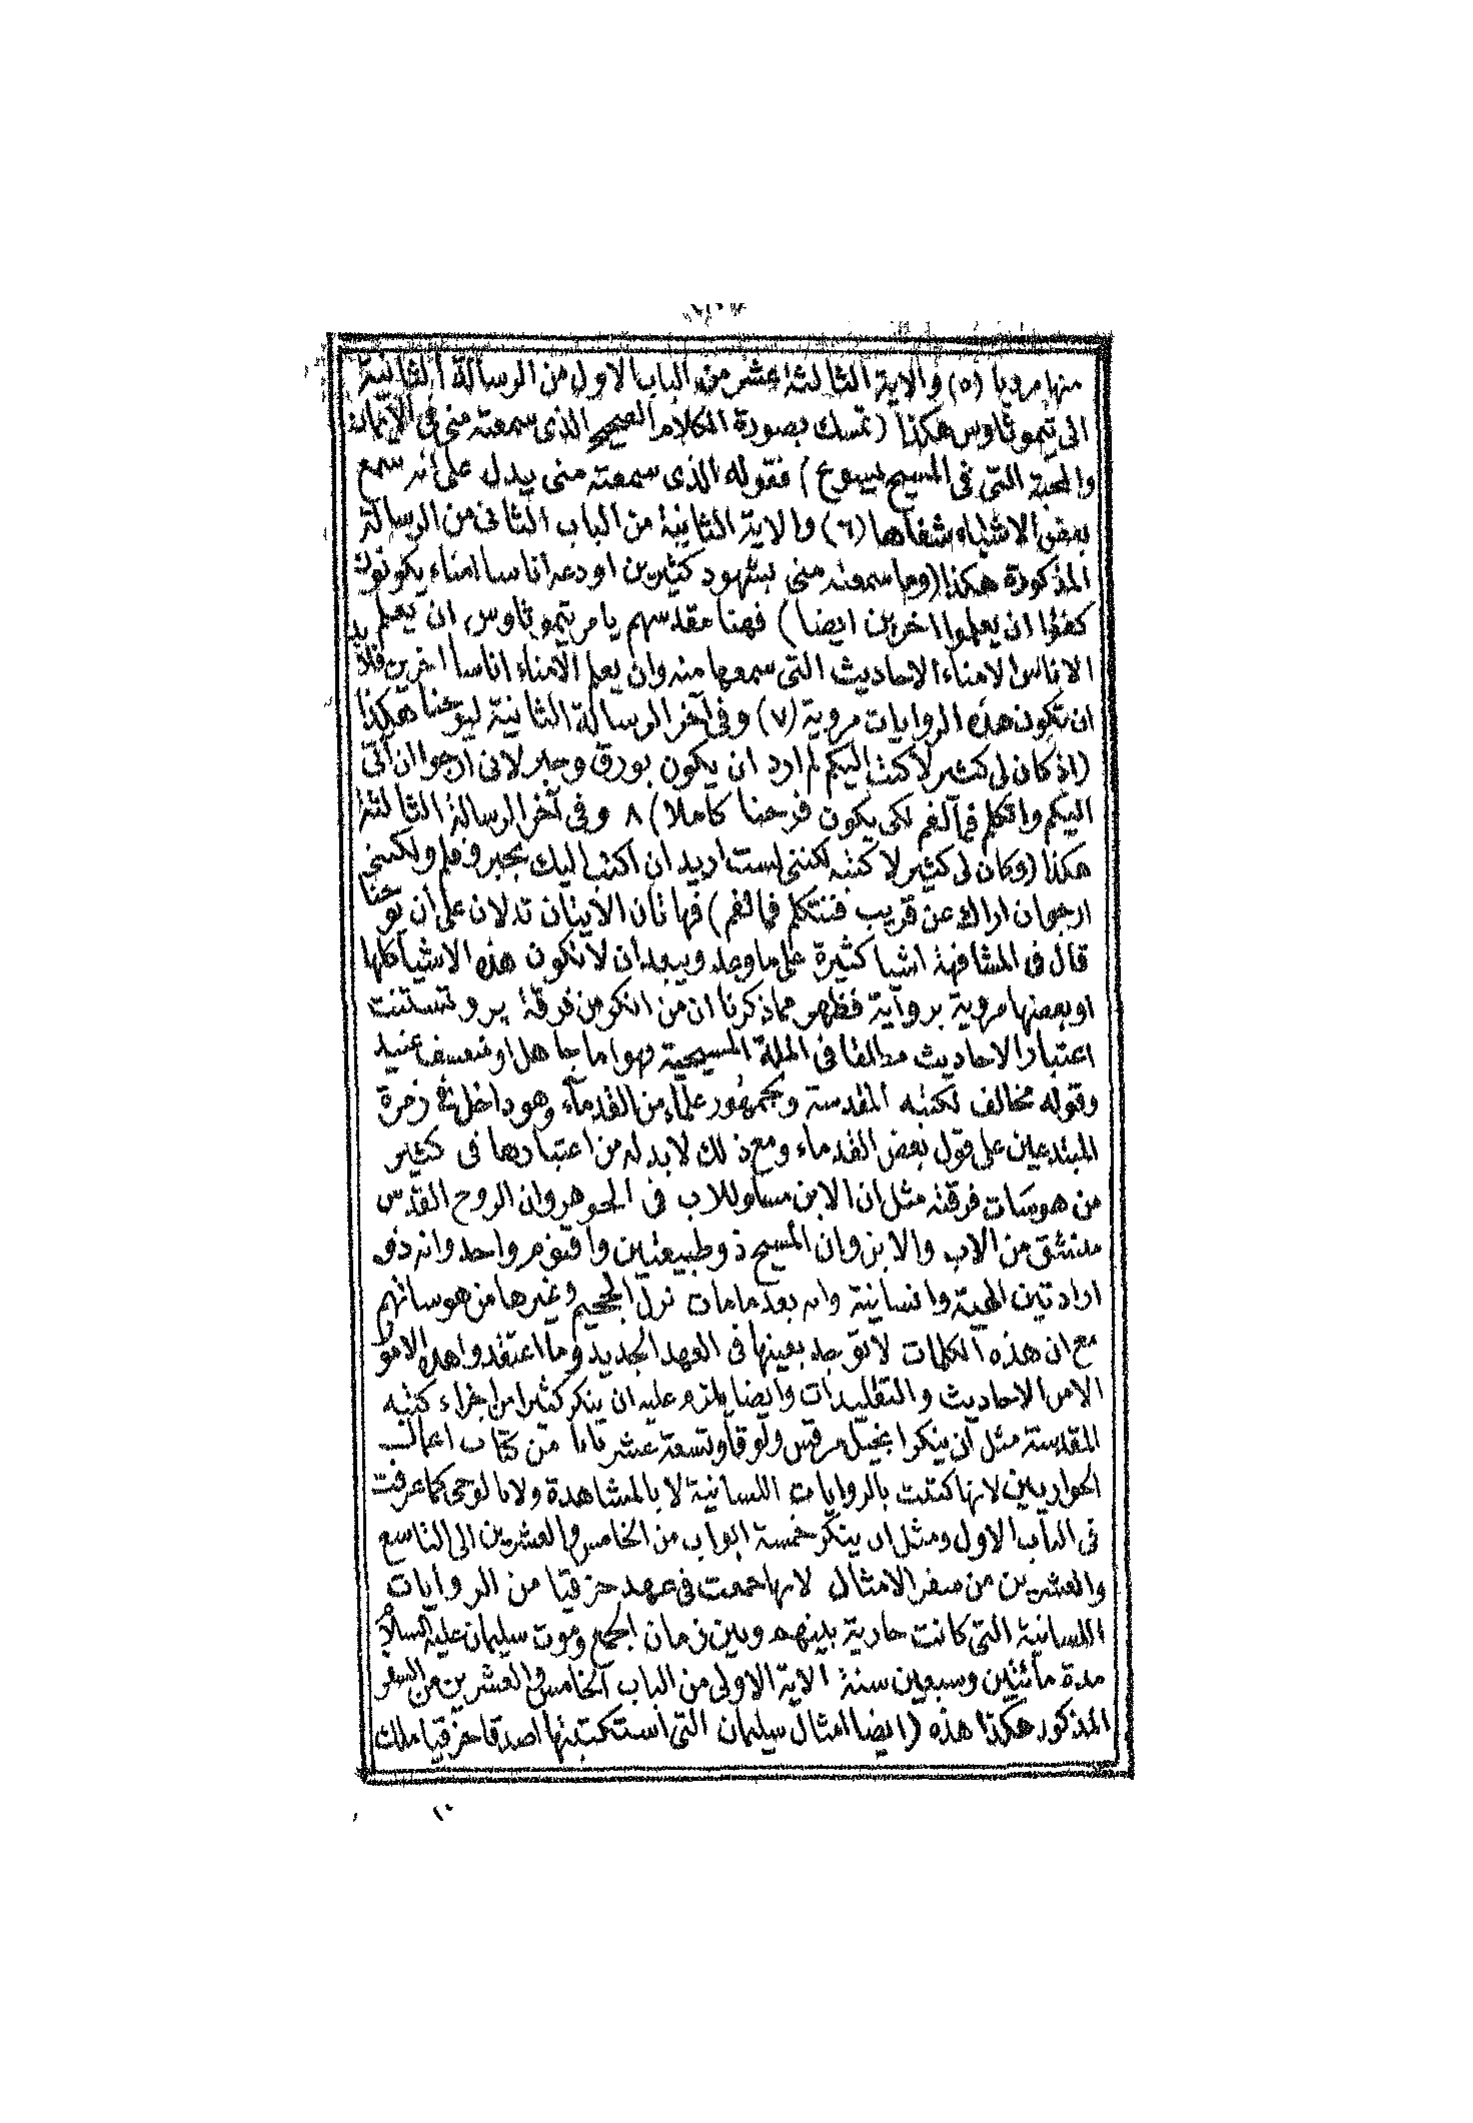 منها مرويا (٥) والاية الثالثة عشر من الباب الاول من الرسالة الثانية
الى تيموثاوس هكذا (تمسك بصورة الكلام الصحيح الذى سمعته منى فى الايمان
والمحبة التى فى المسيح يسوع) فقوله الذى سمعته منى يدل على انه سمع
بعض الاشياء شفاها (٦) والاية الثانية من الباب الثانى من الرسالة
المذكورة هكذا (وما سمعته منى بشهود كثيرين اودعه اناسا امناء يكونون
كفئوا ان يعلموا اخرين ايضا) فهنا مقدسهم يامر تيموثاوس ان يعلم
الاناس الامناء الاحاديث التى سمعها منه وان يعلم الامناء اناسا اخرين فلابد
ان تكون هذه الروايات مروية (٧) وفى آخر الرسالة الثانية ليوحنا هكذا
(اذ كان لى كثير لاكتب اليكم لم ارد ان يكون بورق وحبر لانى ارجوا ان آتى
اليكم واتكلم فمالفم لكى يكون فرحنا كاملا) ٨ وفى آخر الرسالة الثالثة
هكذا (وكان لى كثير لاكتبه لكننى لست اريد ان اكتب اليك بحبر وقلم ولكننى
ارجو ان اراك عن قريب فنتكلم فمالفم) فهاتان الايتان تدلان على ان يوحنا
قال فى المشافهة اشيا كثيرة على ما وعد ويبعد ان لا تكون هذه الاشيا كلها
او بعضها مروية برواية فظهر مماذكرنا ان من انكر من فرقة پروتستنت
اعتبار الاحاديث مطلقا فى الملة المسيحية فهو اما جاهل او متعسف عنيد
وقوله مخالف لكتبه المقدسة وجمهور علماء من القدماء وهو داخل فى زمرة
المبتدعين على قول بعض القدماء ومع ذلك لابد له من اعتبارها فى كثير
من هوسات فرقته مثل ان الابن مساو للاب فى الجوهر وان الروح القدس
منبثق من الاب والابن وان المسيح ذو طبيعتين واقنوم واحد وانه ذو
ارادتين الهية وانسانية وانه بعد مامات نزل الجحيم وغيرها من هوساتهم
مع ان هذه الكلمات لا توجد بعينها فى العهد الجديد وما اعتقدوا هذه الامور
الا من الاحاديث والتقليدات وايضا يلزم عليه ان ينكر كثيرا من اجزاء كتبه
المقدسة مثل ان ينكر انجيل مرقس ولوقا وتسعة عشر بابا من كتاب اعمال
الحواريين لانها كتبت بالروايات اللسانية لا بالمشاهدة ولا بالوحى كما عرفت
فى الباب الاول ومثل ان ينكر خمسة ابواب من الخامس والعشرين الى التاسع
والعشرين من سفر الامثال لانها جمعت فى عهد حزقيا من الروايات
اللسانية التى كانت جارية بينهم وبين زمان الجمع وموت سليمان عليه السلام
مدة مأئتين وسبعين سنة الاية الاولى من الباب الخامس والعشرين من السفر
المذكور هكذا هذه (ايضا امثال سليمان التى استكتبتها اصدقا حزقيا ملك